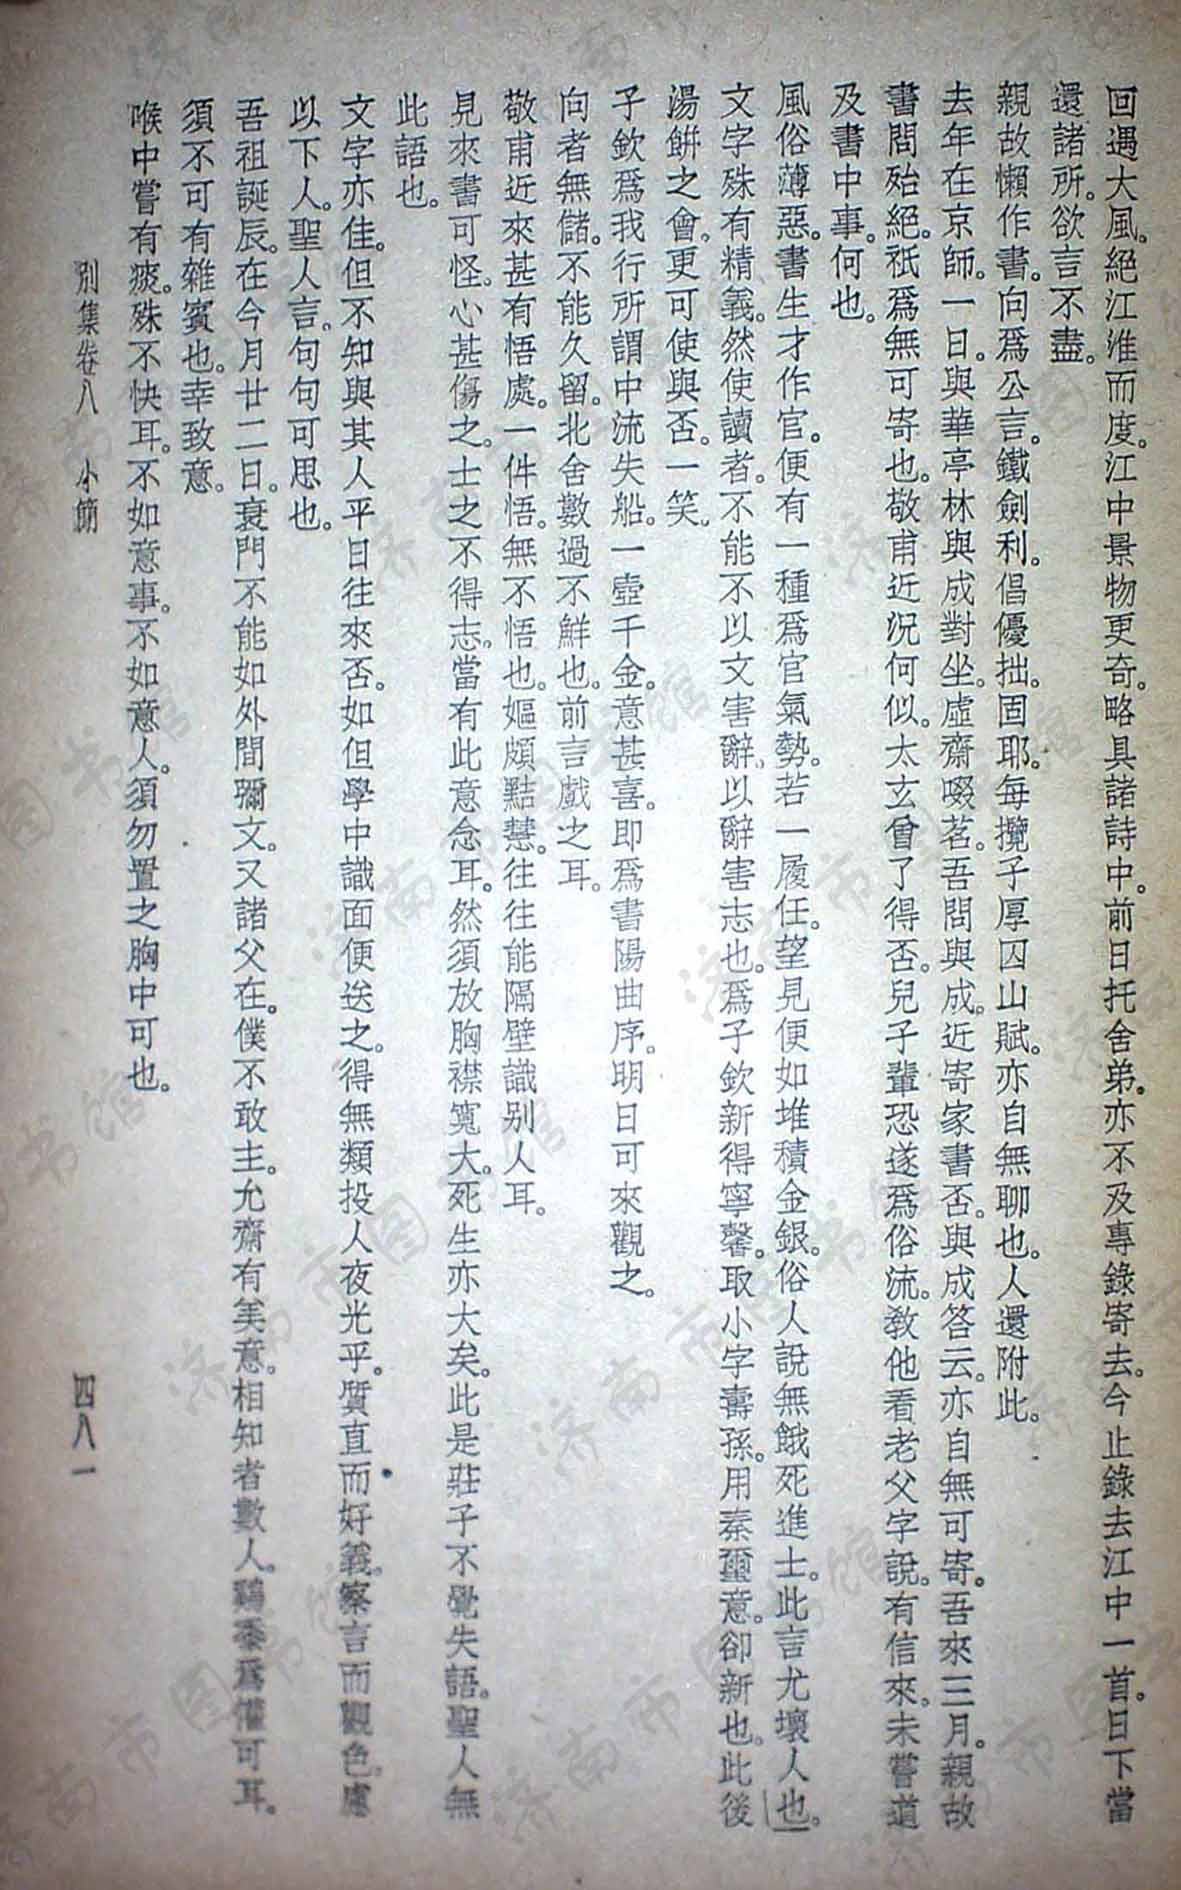 回遇大風。絕江淮而度。江中景物更奇。略具諸詩中。前日托舍弟。亦不及專錄寄去。今止錄去江中一首。日下當
還諸所欲言不盡。
親故懶作書。向爲公言。鐵劍利。倡優拙。固耶。每攬子厚囚山賦。亦自無聊也。人還附此。
去年在京師。一日。與華亭林與成對坐。虛齋啜茗。吾問與成。近寄家書否。與成答云。亦自無可寄。吾來三月。親故
書問殆絕。祇爲無可寄也。敬甫近況何似。太玄曾了得否。兒子輩恐遂爲俗流。教他看老父字說。有信來。未嘗道
及書中事。何也。
風俗薄惡。書生才作官。便有一種爲官氣勢。若一履任。望見便如堆積金銀。俗人說無餓死進士。此言尤壞人也。
文字殊有精義。然使讀者。不能不以文害辭。以辭害志也。爲子欽新得寧馨。取小字壽孫。用秦璽意。卻新也。此後
湯餅之會。更可使與否。一笑。
子欽爲我行所謂中流失船。一壺千金。意甚喜。即爲書陽曲序。明日可來觀之。
向者無儲。不能久留。北舍數過不鮮也。前言戲之耳。
敬甫近來甚有悟處。一件悟。無不悟也。嫗頗黠慧。往往能隔壁識別人耳。
見來書可怪。心甚傷之。士之不得志。當有此意念耳。然須放胸襟寬大。死生亦大矣。此是莊子不覺失語。聖人無
此語也。
文字亦佳。但不知與其人平日往來否。如但學中識面便送之。得無類投人夜光乎。質直而好義。察言而觀色。慮
以下人。聖人言。句句可思也。
吾祖誕辰。在今月廿二日。衰門不能如外間彌文。又諸父在。僕不敢主。允齋有美意。相知者數人。鷄黍爲懽可耳。
須不可有雜賓也。幸致意。
喉中嘗有痰。殊不快耳。不如意事。不如意人。須勿置之胸中可也。
別集卷八 小簡
四八一